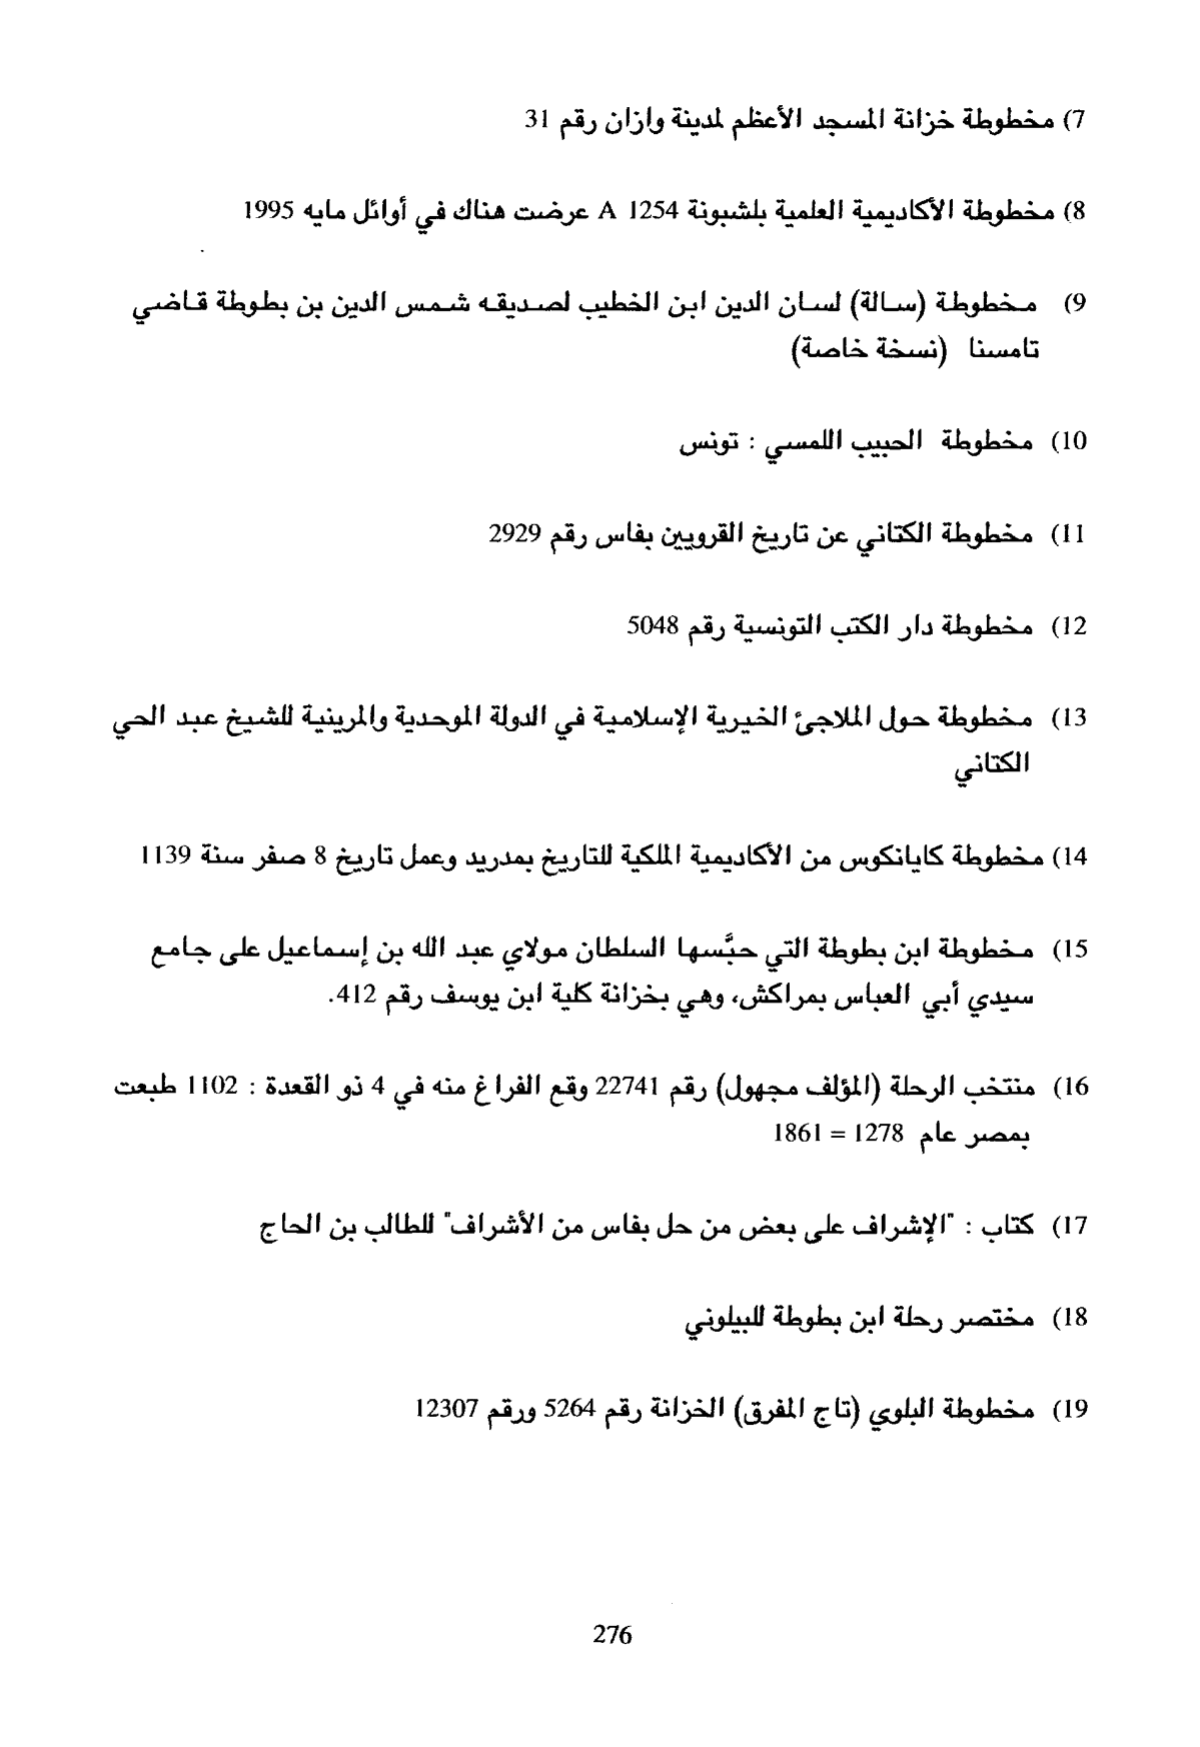 7) مخطوطة خزانة المسجد الأعظم لمدينة وازان رقم 31
8) مخطوطة الأكاديمية العلمية بلشبونة A 1254 عرضت هناك في أوائل مايه 1995
9) مخطوطة (سالة) لسان الدين ابن الخطيب لصديقه شمس الدين بن بطوطة قاضي
تامسنا (نسخة خاصة)
10) مخطوطة الحبيب اللمسي : تونس
11) مخطوطة الكتاني عن تاريخ القرويين بفاس رقم 2929
12) مخطوطة دار الكتب التونسية رقم 5048
13) مخطوطة حول الملاجئ الخيرية الإسلامية في الدولة الموحدية والمرينية للشيخ عبد الحي
الكتاني
14) مخطوطة كايانكوس من الأكاديمية الملكية للتاريخ بمدريد وعمل تاريخ 8 صفر سنة 1139
15) مخطوطة ابن بطوطة التي حبَّسها السلطان مولاي عبد الله بن إسماعيل على جامع
سيدي أبي العباس بمراكش، وهي بخزانة كلية ابن يوسف رقم 412.
16) منتخب الرحلة (المؤلف مجهول) رقم 22741 وقع الفراغ منه في 4 ذو القعدة : 1102 طبعت
بمصر عام 1278 = 1861
17) كتاب : "الإشراف على بعض من حل بفاس من الأشراف" للطالب بن الحاج
18) مختصر رحلة ابن بطوطة للبيلوني
19) مخطوطة البلوي (تاج المفرق) الخزانة رقم 5264 ورقم 12307
276